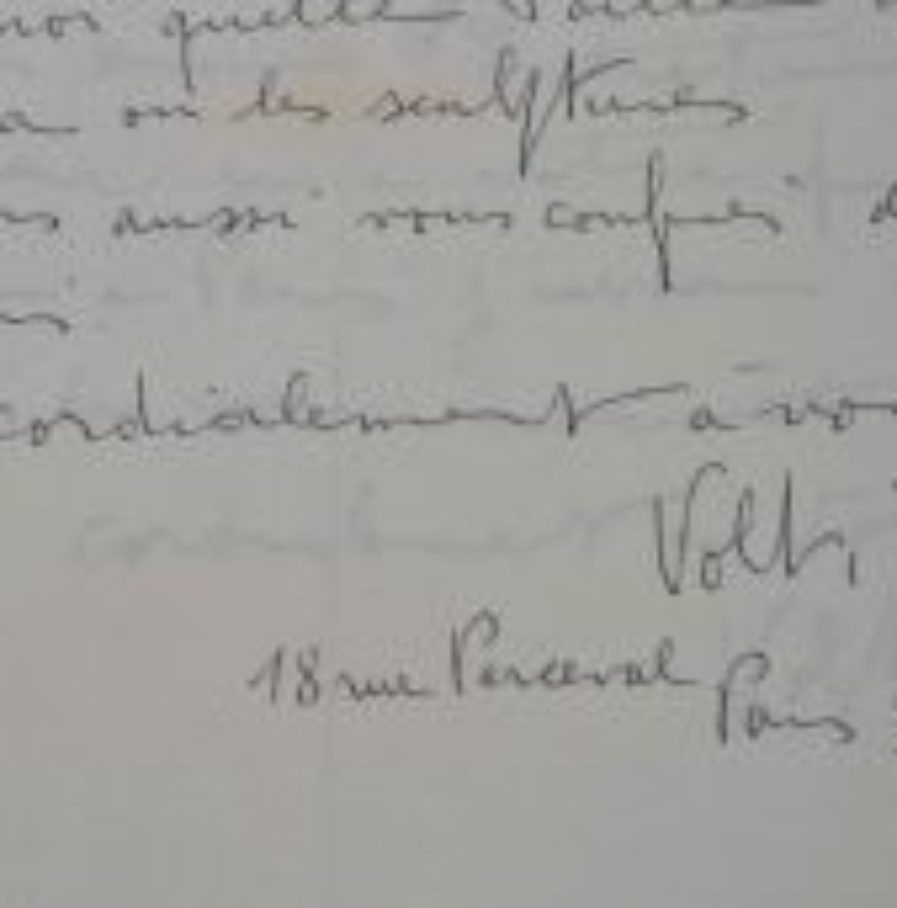 quelle
on les sculptures
aussi vous confier
cordialement à vo
Volti
18 rue Perceval Paris